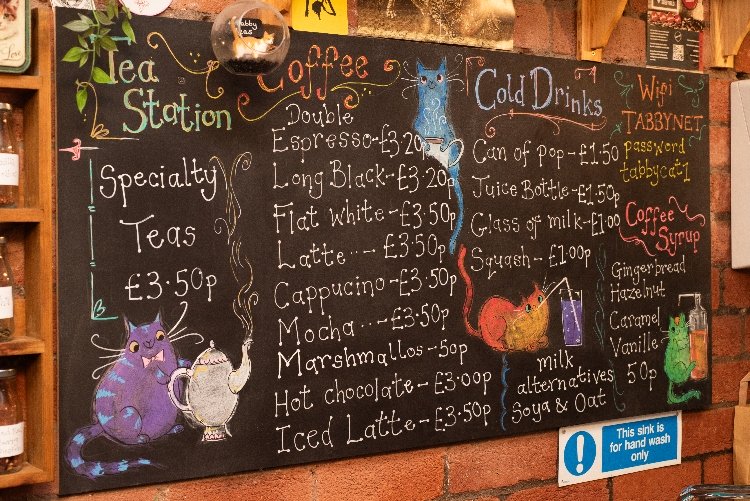 Tabby
Teas
Tea
Station
Specialty
Teas
£3.50p
Coffee
Double
Espresso-£3.20
Long Black-£3.20p
Flat white-£3.50p
Latte---£3.50p
Cappucino-£3.50p
Mocha---£3.50p
Marshmallos-50p
Hot chocolate-£3.00p
Iced Latte-£3.50p
Cold Drinks
Can of Pop-£1.50
Juice Bottle-£1.50p
Glass of milk-£1.00
Squash-£1.00p
milk
alternatives
Soya & Oat
Wifi
TABBYNET
password
tabbycat1
Coffee
Syrup
Gingerbread
Hazelnut
Caramel
Vanille
50p
This sink is
for hand wash
only